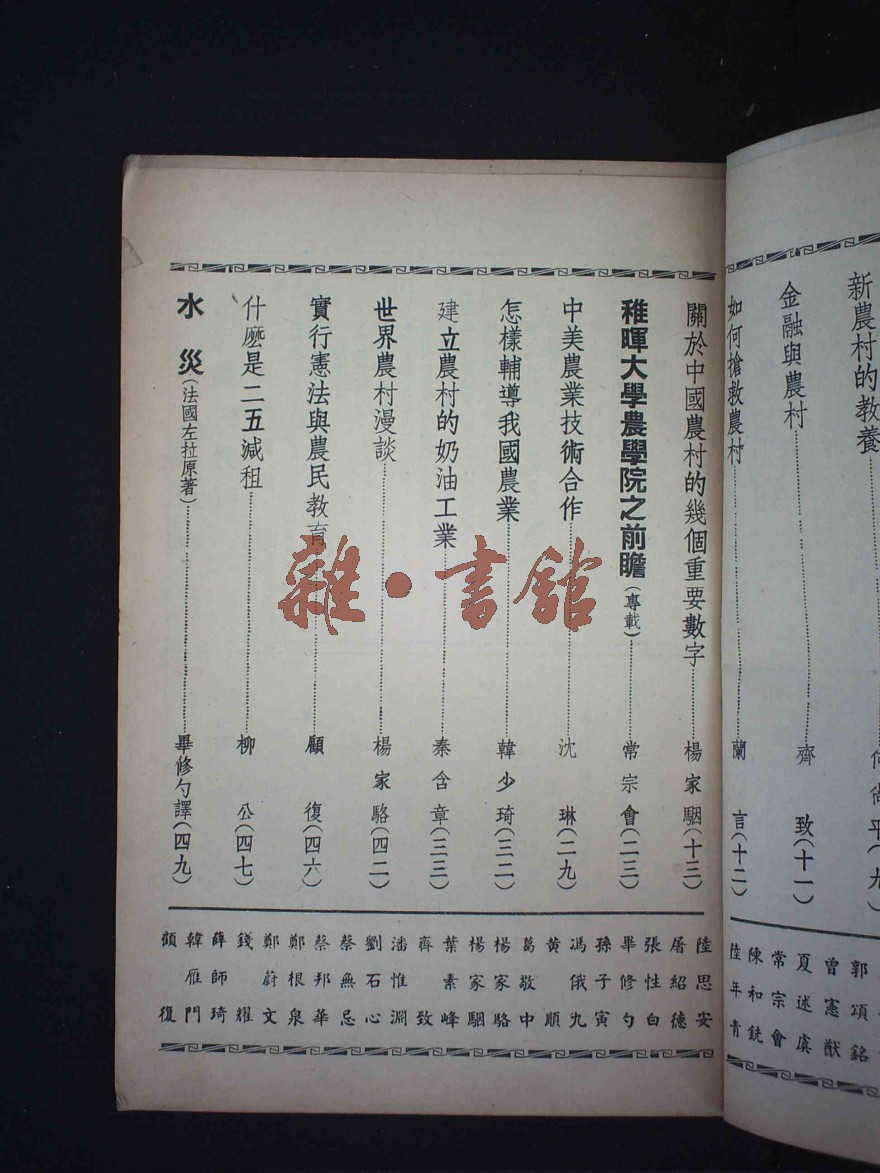 新農村的教養
金融與農村 齊致(十一)
如何搶救農村 蘭言(十二)
郭項銘
曾憲猷
夏述虞
常宗會
陳和銑
陸年青
關於中國農村的幾個重要數字 楊家駰(十三)
稚暉大學農學院之前瞻(專載) 常宗會(二三)
中美農業技術合作 沈琳(二九)
怎樣輔導我國農業 韓少琦(三二)
建立農村的奶油工業 秦含章(三三)
世界農村漫談 楊家駱(四二)
實行憲法與農民教育 顧復(四六)
什麼是二五減租 柳公(四七)
水災(法國左拉原著) 畢修勺譯(四九)
陸思安
屠紹德
張性白
畢修勺
孫子寅
馮俄九
黃順
葛敬中
楊家駱
楊家駰
葉素峰
齊致
潘惟淵
劉石心
蔡無忌
蔡邦華
鄭根泉
鄭蔚文
錢耀
薛師琦
韓雁門
顧復
雜·書館